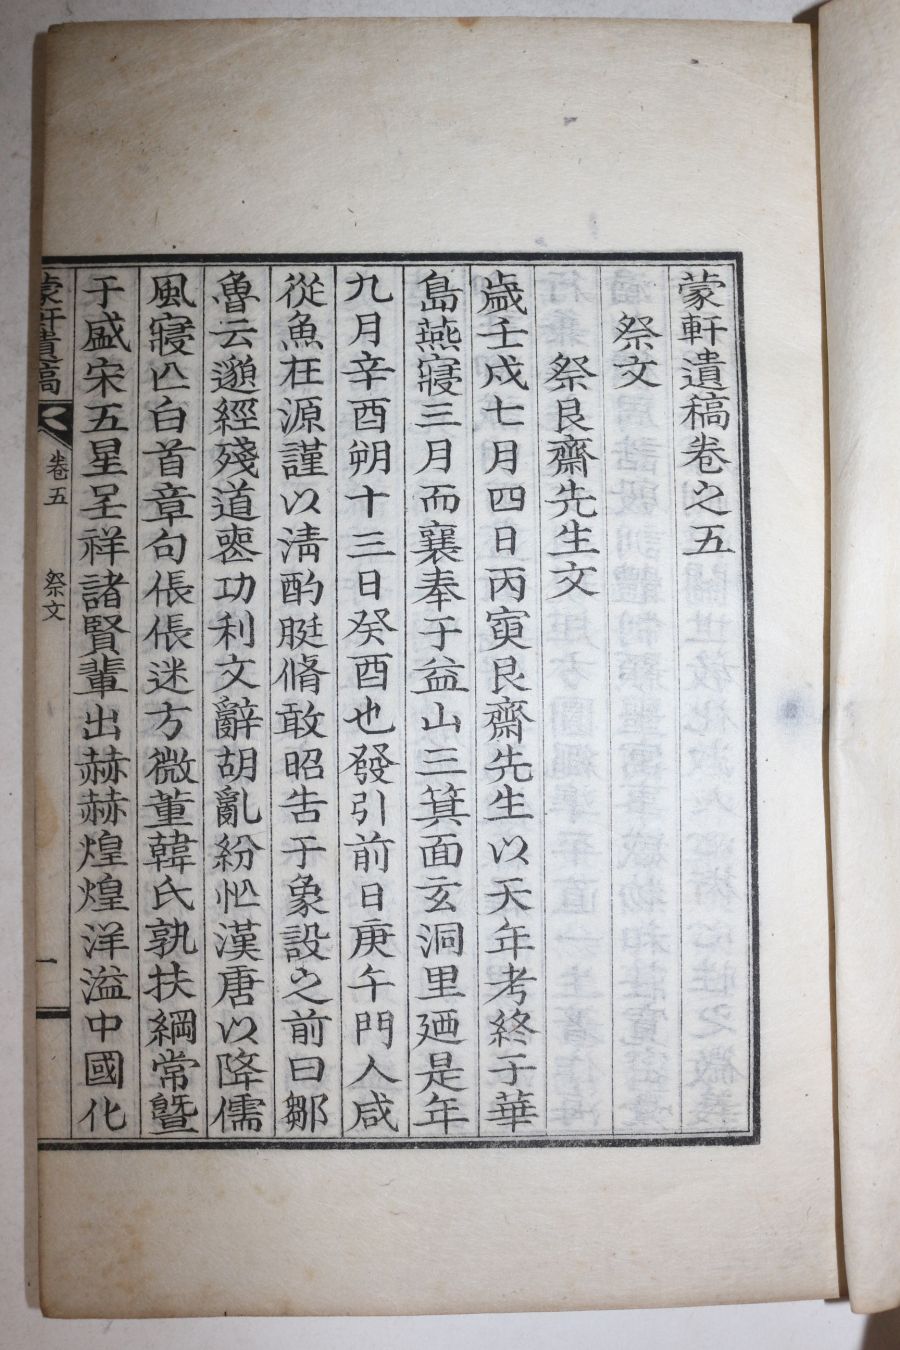 蒙軒遺稿卷之五
祭文
祭艮齋先生文
歲壬戌七月四日丙寅艮齋先生以天年考終于華
島燕寢三月而襄奉于益山三箕面玄洞里廼是年
九月辛酉朔十三日癸酉也發引前日庚午門人咸
從魚在源謹以淸酌脡脩敢昭告于象設之前曰鄒
魯云邈經殘道喪功利文辭胡亂紛㤀漢唐以降儒
風寢亡白首章句倀倀迷方微董韓氏孰扶綱常曁
于盛宋五星呈祥諸賢輩出赫赫煌煌洋溢中國化
蒙軒遺稿
卷五
祭文
一